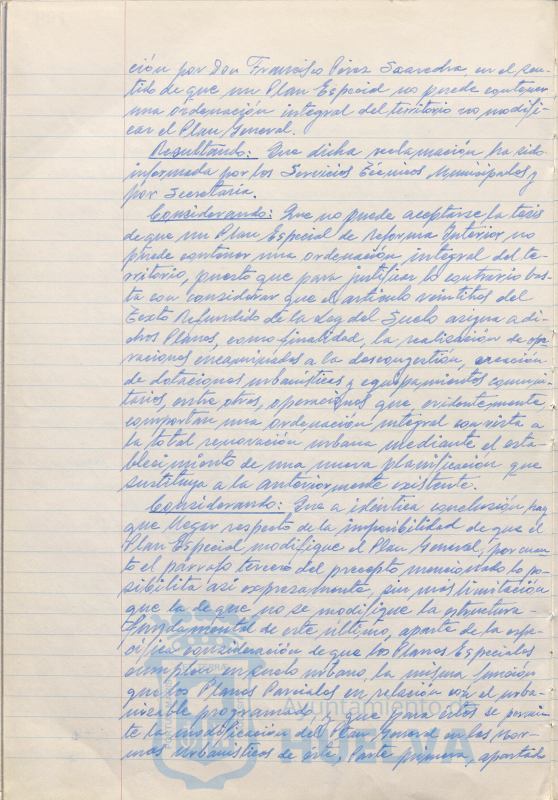 ción por Don Francisco Pérez Saavedra, en el sen-
tido de que un Plan Especial no puede contener
una ordenación integral del territorio no modifi-
car el Plan General.
Resultando: Que dicha reclamación ha sido
informada por los Servicios Técnicos Municipales y
por Secretaría.
Considerando: Que no puede aceptarse la tesis
de que un Plan Especial de Reforma Interior no
puede contener una ordenación integral del te-
rritorio, puesto que para justificar lo contrario bas-
ta con considerar que el artículo veintitrés del
Texto Refundido de la Ley del Suelo asigna a di-
chos Planes, como finalidad, la realización de ope-
raciones encaminadas a la descongestión, creación
de dotaciones urbanísticas y equipamientos comuni-
tarios, entre otras, operaciones que, evidentemente,
comportan una ordenación integral con vista a
la total renovación urbana mediante el esta-
blecimiento de una nueva planificación que
sustituya a la anteriormente existente.
Considerando: Que a idéntica conclusión hay
que llegar respecto de la imposibilidad de que el
Plan Especial modifique el Plan General, por cuan-
to el párrafo tercero del precepto mencionado lo po-
sibilita así expresamente, sin más limitación
que la de que no se modifique la estructura
fundamental de este último, aparte de la espe-
cífica consideración de que los Planes Especiales
cumplen en suelo urbano, la misma función
que los Planes Parciales en relación con el urba-
nizable programado, y que para estos se permi-
te la modificación del Plan General en las Nor-
mas urbanísticas de éste, Parte primera, apartado
Ayuntamiento de
HUELVA